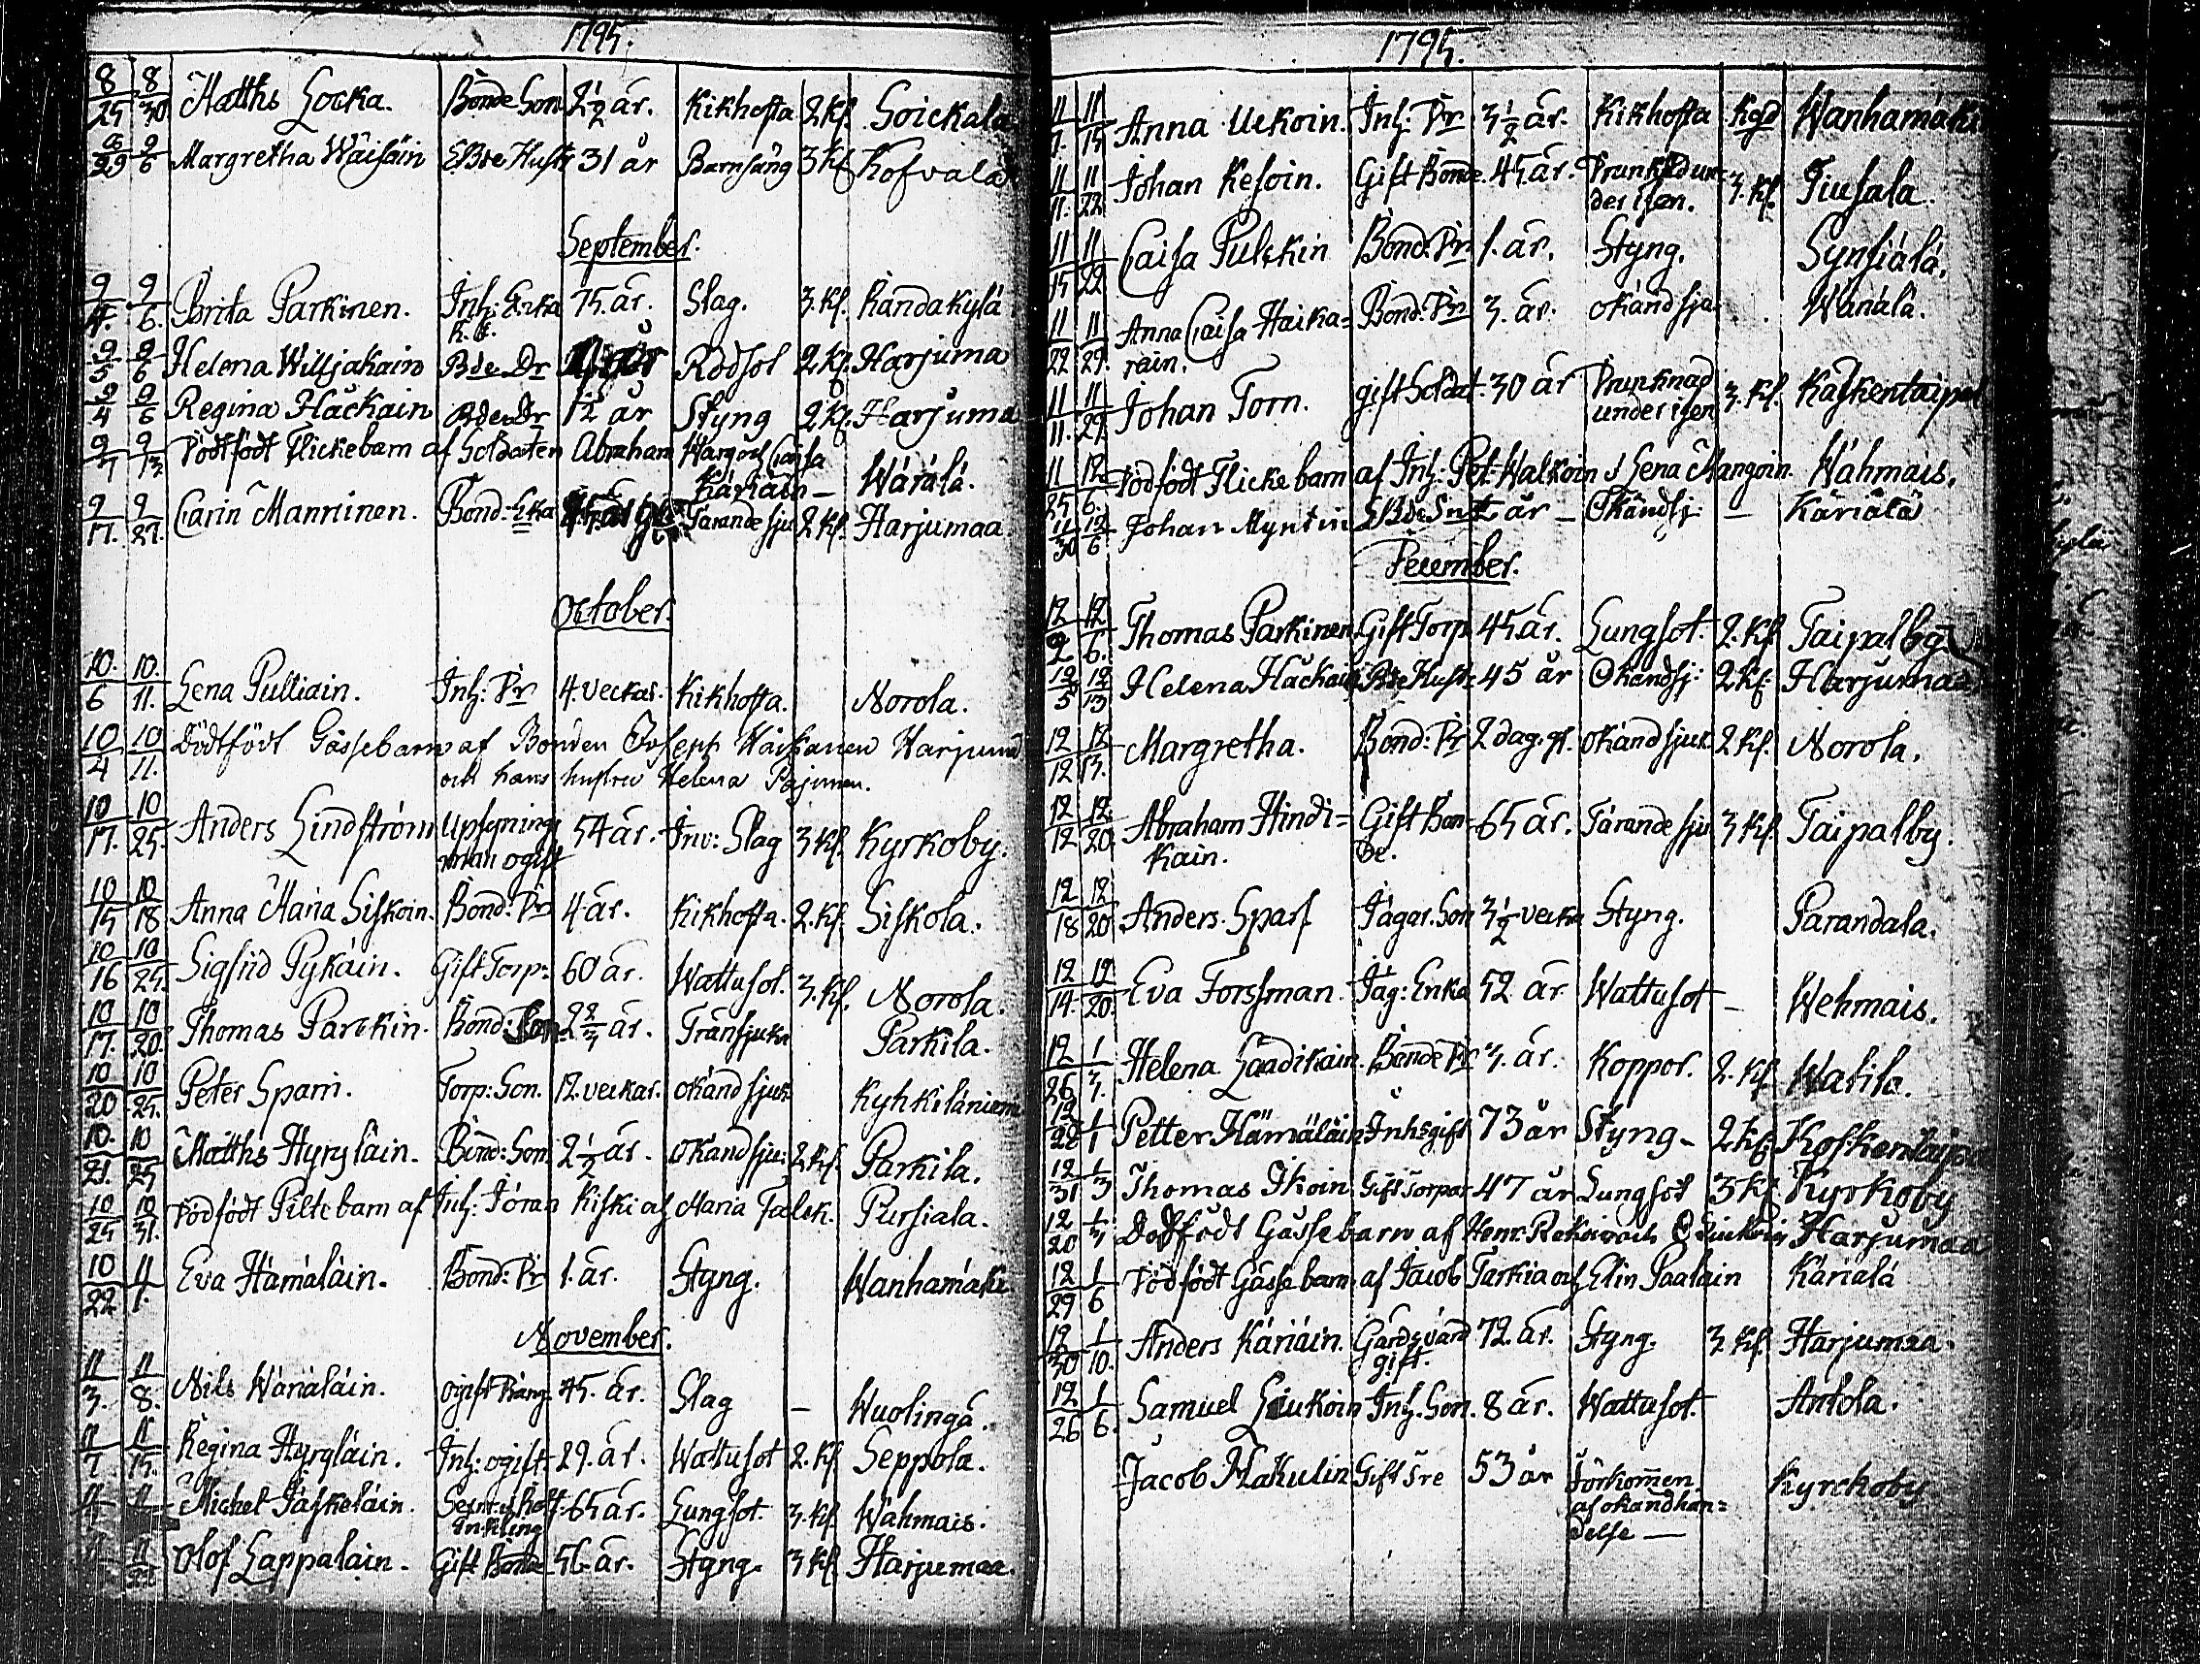 1795.
8/25 8/30 Matths Socka. Bonde Son 2 1/2 år. Kikhosta 2 Kl. Soickala
8/29 9/6 Margretha Wäisäin EBde Hustr 31 år Barnsäng 3 Kl Kofvala
September.
9/4. 9/6. Brita Parkinen. Inh: Enka 75. år. Slag. 3. Kl. Randakylä
9/5 9/6 Helena Wilsjakain Bde Dr Rödsot 2 Kl. Harjuma
9/4 9/6 Regina Häckäin Bde Dr 12 år Styng 2 Kl. Harjuma
9/7 9/13 Dödfödt Flickebarn af Soldaten Abraham Warg och Caisa
Käriäin – Wärälä.
9/17. 9/27. Carin Manninen. Bond: Eka Tärande sju 2 Kl. Harjumaa
October.
10./6 10./11. Lena Pulliain. Inh: Dr 4. veckar. Kikhosta. Norola.
10/4 10/11. Dödtfödt Gåssebarn af Bonden Joseph Häckänen Harjuma
och hans hustru Helena Pajunen.
10/17. 10/25. Anders Lindström Upsynings 54 år. Inv: Slag 3 Kl. Kyrkoby.
man ogift
10/15 10/18 Anna Maria Siskoin. Bond: Dr 4 år. Kikhosta. 2. Kl. Siskola.
10/16 10/25. Sigfrid Pykäin. Gift Torp: 60 år. Wattusot. 3. Kl. Norola.
10/17. 10/20. Thomas Parckin. Bond: Son 2 2/3 år. Tränsjuka Parkila.
10/20 10/25. Peter Sparri. Torp: Son. 12. veckar. okänd sjuk. Kyhkiläniem
10./21. 10/25 Matths Hyryläin. Bond: Son. 2 1/2 år. okänd sju: 2 Kl. Parkila.
10/25 10/31. Dödfödt Piltebarn af Inh: Jöran Kiski och Maria Talck. Pursiala.
10/22 11/1. Eva Hämäläin. Bond: Dr 1. år. Styng. Wanhamäki
November.
11/3. 11/8. Nils Wänäläin. ogift Dräng 45. år. Slag – Wuolingå.
11/7 11/15. Regina Hyryläin. Inh: ogift 29. år. Wattusot 2. Kl. Seppola.
11 11 Michel Jäskeläin. 65 år. Lungsot. 3. Kl. Wähmais.
Enkling
11 11/22 Olof Lappalain. Gift Bonde 56. år. Styng. 3 Kl. Harjumaa.
1795.
11/7. 11/15 Anna Uckoin. Inh: Dr 3 1/2 år. Kikhosta Kgd Wanhamäki
11/11. 11/22 Johan Kesoin. Gift Bonde. 45. år. Drunknad un=
der isen. 3. Kl. Tiusala.
11/15 11/22 Caisa Pulckin Bond: Dr 1. år. Styng. Synsiälä.
11/22 11/29. Anna Caisa Haika= Bond: Dr 3. år. okänd sju. Wänälä.
rain.
11/11. 11/29. Johan Torn. gift Soldat. 30 år Drunknad
under isen 3. Kl. Kaskentaipal
11/25 12/6. Dödfödt Flickebarn af Inh: Pet: Walkoin / Lena Mangoin. Wähmais.
11/30 12/6 Johan Myntin år – Okändsj: – Käriälä
December.
12/2 12/6. Thomas Parkinen Gift Torp 45. år. Lungsot. 2. Kl Taipalby
12/5 12/13 Helena Häckäin Bde Hustr: 45 år Okändsj: 2 Kl: Harjumaa
12/12 12/13. Margretha. Bond: Dr 2 dag. gl. okänd sjuk. 2 Kl. Norola.
12/12 12/20. Abraham Hindi= Gift Bon= 65 år. Tärande sju 3 Kl. Taipalby.
kain. de.
12/18 12/20 Anders Sparf Jägar. Son 3 1/2 vecka Styng. Parandala.
12/14. 12/20. Eva Forssman. Jäg: Enka 52 år Wattusot – Wehmais.
12/26 1/3. Helena Laadikain. Bonde Dr 3. år. Koppor. 2. Kl Watila.
12/28 1/1 Petter Hämäläin Inhs gift 73 år Styng – 2 Kl Koskentaipa
12/31 1/3 Thomas Ikoin Gift Torpar 47 år Lungsot 3 Kl Kyrkoby
12/20 1/3 Dödfödt Gåssebarn af Henr: Harjumaa
12/29 1/6 Dödfödt Gåssebarn af Jacob Tarkia och Elin Paalain Käriälä
12/30 1/10. Anders Käriäin. Gårdsvärd 72. år. Styng. 3 Kl. Harjumaa.
gift.
12/26 1/6. Samuel Liukoin Inh. Son. 8 år. Wattusot. Antola.
Jacob Makulin Gift Dre 53 år Förkommen
af okänd hän= Kyrckoby
delse —